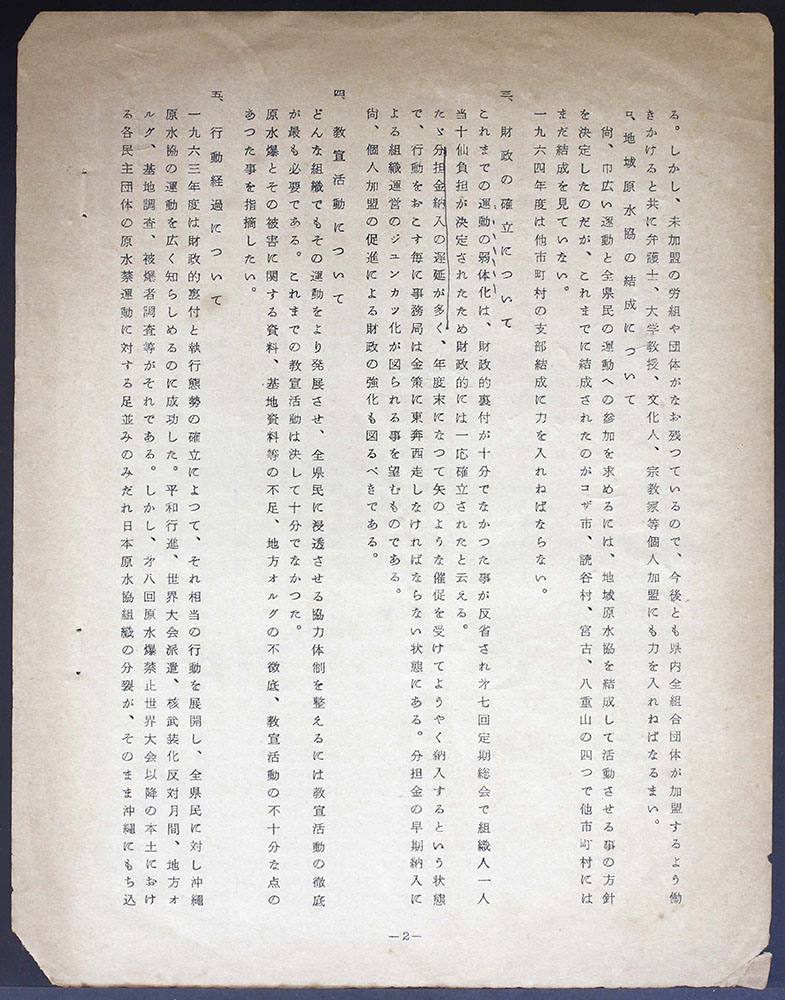 る。しかし、未加盟の労組や団体がなお残つているので、今後とも県内全組合団体が加盟するよう働
きかけると共に弁護士、大学教授、文化人、宗教家等個人加盟にも力を入れねばなるまい。
ロ、地域原水協の結成について
尚、巾広い運動と全県民の運動への参加を求めるには、地域原水協を結成して活動させる事の方針
を決定したのだが、これまでに結成されたのがコザ市、読谷村、宮古、八重山の四つで他市町村には
まだ結成を見ていない。
一九六四年度は他市町村の支部結成に力を入れねばならない。
三、財政の確立について
これまでの運動の弱体化は、財政的裏付が十分でなかつた事が反省され才七回定期総会で組織人一人
当十仙負担が決定されたため財政的には一応確立されたと云える。
たゞ分担金納入の遅延が多く、年度末になつて矢のような催促を受けてようやく納入するという状態
で、行動をおこす毎に事務局は金策に東奔西走しなければならない状態にある。分担金の早期納入に
よる組織運営のジユンカツ化が図られる事を望むものである。
尚、個人加盟の促進による財政の強化も図るべきである。
四、教宣活動について
どんな組織でもその運動をより発展させ、全県民に浸透させる協力体制を整えるには教宣活動の徹底
が最も必要である。これまでの教宣活動は決して十分でなかつた。
原水爆とその被害に関する資料、基地資料等の不足、地方オルグの不徹底、教宣活動の不十分な点の
あつた事を指摘したい。
五、行動経過について
一九六三年度は財政的裏付と執行態勢の確立によつて、それ相当の行動を展開し、全県民に対し沖縄
原水協の運動を広く知らしめるのに成功した。平和行進、世界大会派遣、核武装化反対月間、地方オ
ルグ、基地調査、被爆者調査等がそれである。しかし、才八回原水爆禁止世界大会以降の本土におけ
る各民主団体の原水禁運動に対する足並みのみだれ日本原水協組織の分裂が、そのまま沖縄にもち込
—2—